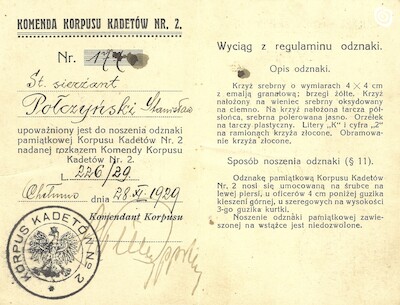 KOMENDA KORPUSU KADETÓW NR. 2.
Nr. 177
St. sierżant
Połczyński Stanisław
upoważniony jest do noszenia odznaki
pamiątkowej Korpusu Kadetów Nr. 2
nadanej rozkazem Komendy Korpusu
Kadetów Nr. 2.
L. 226/29
Chełmno dnia 28 XI 1929
Komendant Korpusu
KORPUS KADETÓW No 2
Wyciąg z regulaminu odznaki.
Opis odznaki.
Krzyż srebrny o wymiarach 4 × 4 cm
z emalją granatową; brzegi żółte. Krzyż
nałożony na wieniec srebrny oksydowany
na ciemno. Na krzyż nałożona tarcza pół-
słońca, srebrna polerowana jasno. Orzełek
na tarczy plastyczny. Litery „K" i cyfra „2"
na ramionach krzyża złocone. Obramowa-
nie krzyża złocone.
Sposób noszenia odznaki (§ 11).
Odznakę pamiątkową Korpusu Kadetów
Nr. 2 nosi się umocowaną na śrubce na
lewej piersi, u oficerów 4 cm poniżej guzika
kieszeni górnej, u szeregowych na wysokości
3-go guzika kurtki.
Noszenie odznaki pamiątkowej zawie-
szonej na wstążce jest niedozwolone.